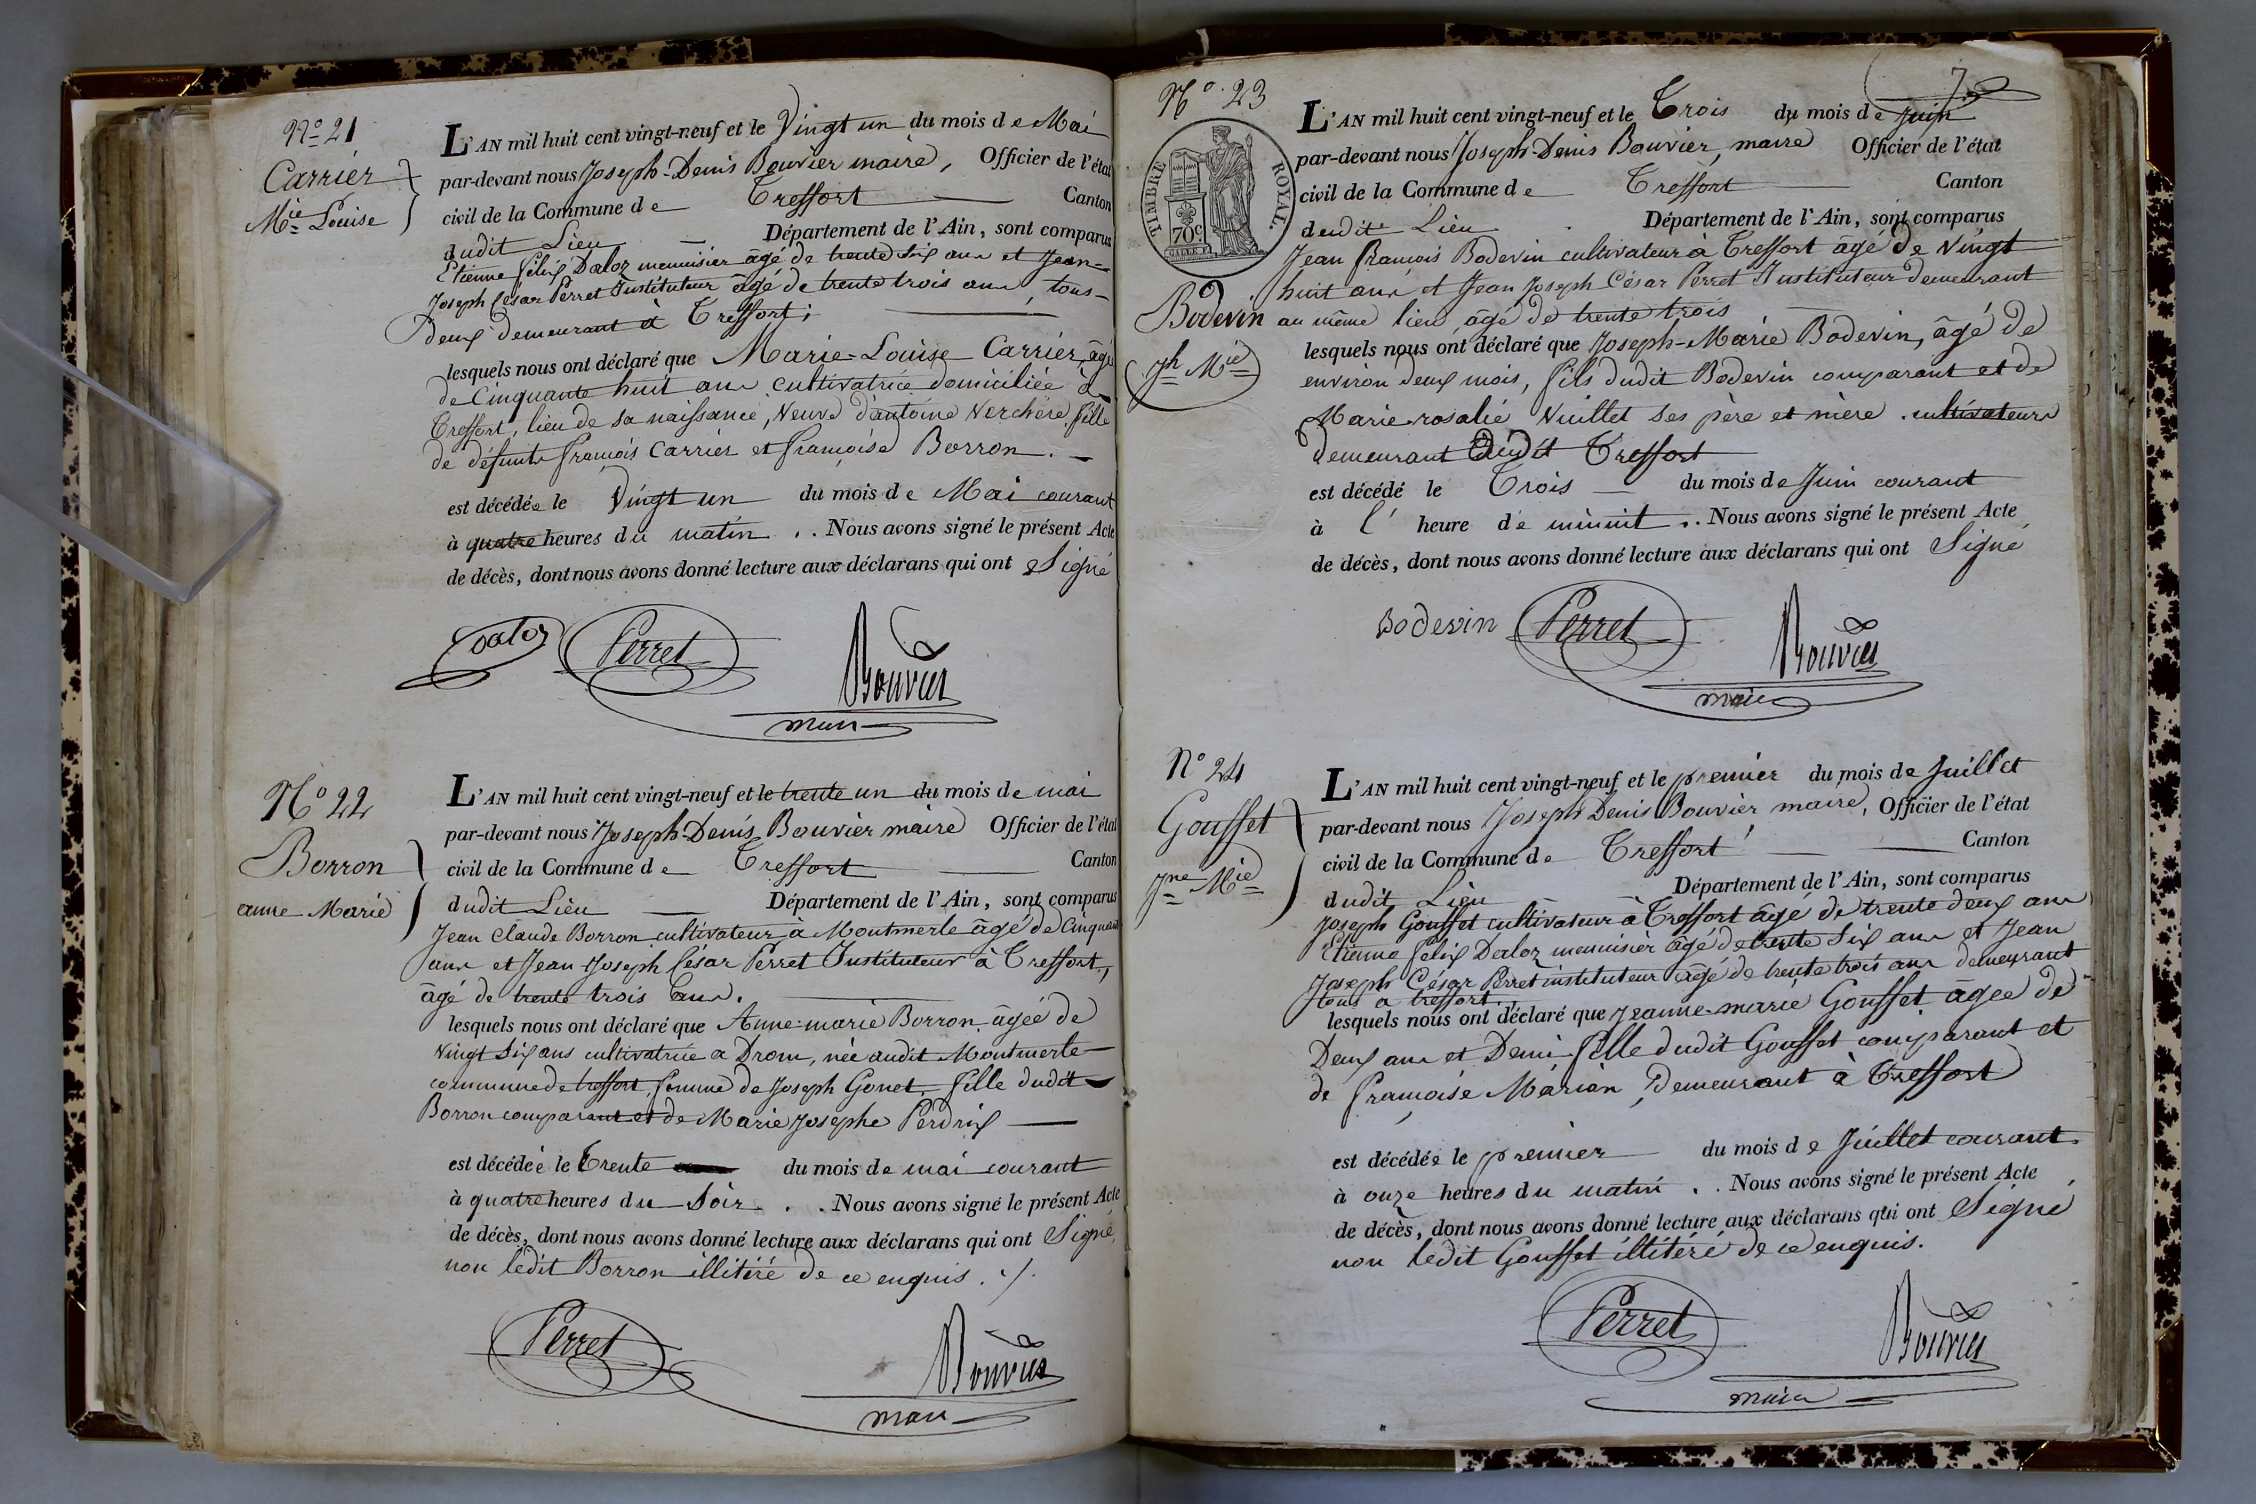 N° 21
Carrier
Mie Louise
L'AN mil huit cent vingt-neuf et le Vingt un du mois de Mai
par-devant nous Joseph-Denis Bouvier maire, Officier de l'état
civil de la Commune de Treffort Canton
dudit Lieu Département de l'Ain, sont comparus
Etienne félix Daloz menuisier âgé de trente six ans et Jean-
Joseph César Perret Instituteur âgé de trente trois ans, tous-
deux demeurant à Treffort;
lesquels nous ont déclaré que Marie-Louise Carrier, âgé
de Cinquante huit ans cultivatrice domiciliée à
Treffort, lieu de sa naissance, Veuve d'antoine Verchère, fille
de défunts françois Carrier et françoise Borron.
est décédée le Vingt un du mois de Mai courant
à quatre heures du matin . . Nous avons signé le présent Acte
de décès, dont nous avons donné lecture aux déclarans qui ont Signé
Daloz Perret Bouvier
maire
N° 22
Borron
anne Marie
L'AN mil huit cent vingt-neuf et le trente un du mois de mai
par-devant nous Joseph-Denis Bouvier maire Officier de l'état
civil de la Commune de Treffort Canton
dudit Lieu Département de l'Ain, sont comparus
Jean Claude Borron cultivateur à Montmerle âgé de Cinquante
ans et Jean Joseph César Perret Instituteur à Treffort,
âgé de trente trois ans.
lesquels nous ont déclaré que Anne-marie Borron âgée de
Vingt six ans cultivatrice a Drom, née audit Montmerle
commune de treffort, femme de Joseph Gonet, fille dudit
Borron comparant et de Marie Josephe Perdrix
est décédée le Trente du mois de mai courant
à quatre heures du soir . . Nous avons signé le présent Acte
de décès, dont nous avons donné lecture aux déclarans qui ont Signé,
non ledit Borron illitéré de ce enquis ./.
Perret Bouvier
maire
7
N° 23
TIMBRE ROYAL.
70c
Bodevin
Jh Mie
L'AN mil huit cent vingt-neuf et le Trois du mois de Juin
par-devant nous Joseph-Denis Bouvier, maire Officier de l'état
civil de la Commune de Treffort Canton
dudit Lieu Département de l'Ain, sont comparus
Jean françois Bodevin cultivateur à Treffort âgé de Vingt
huit ans et Jean Joseph César Perret Instituteur demeurant
au même lieu, âgé de trente trois
lesquels nous ont déclaré que Joseph-Marie Bodevin, âgé de
environ deux mois, fils dudit Bodevin comparant et de
Marie-rosalie Vuillet ses père et mère cultivateurs
demeurant audit Treffort
est décédé le Trois du mois de Juin courant
à l' heure de minuit . . Nous avons signé le présent Acte
de décès, dont nous avons donné lecture aux déclarans qui ont Signé
Bodevin Perret Bouvier
maire
N° 24
Gouffet
Jne Mie
L'AN mil huit cent vingt-neuf et le premier du mois de Juillet
par-devant nous Joseph Denis Bouvier maire, Officier de l'état
civil de la Commune de Treffort Canton
dudit Lieu Département de l'Ain, sont comparus
Joseph Gouffet cultivateur à Treffort âgé de trente deux ans
Etienne félix Daloz menuisier âgé de trente six ans et Jean
Joseph César Perret instituteur âgé de trente trois ans demeurant
tous à treffort.
lesquels nous ont déclaré que jeanne-marie Gouffet âgée de
Deux ans et Demi fille dudit Gouffet comparant et
de françoise Marian, Demeurant à Treffort
est décédée le premier du mois de Juillet courant.
à onze heures du matin . . Nous avons signé le présent Acte
de décès, dont nous avons donné lecture aux déclarans qui ont Signé
non ledit Gouffet illitéré de ce enquis.
Perret Bouvier
maire